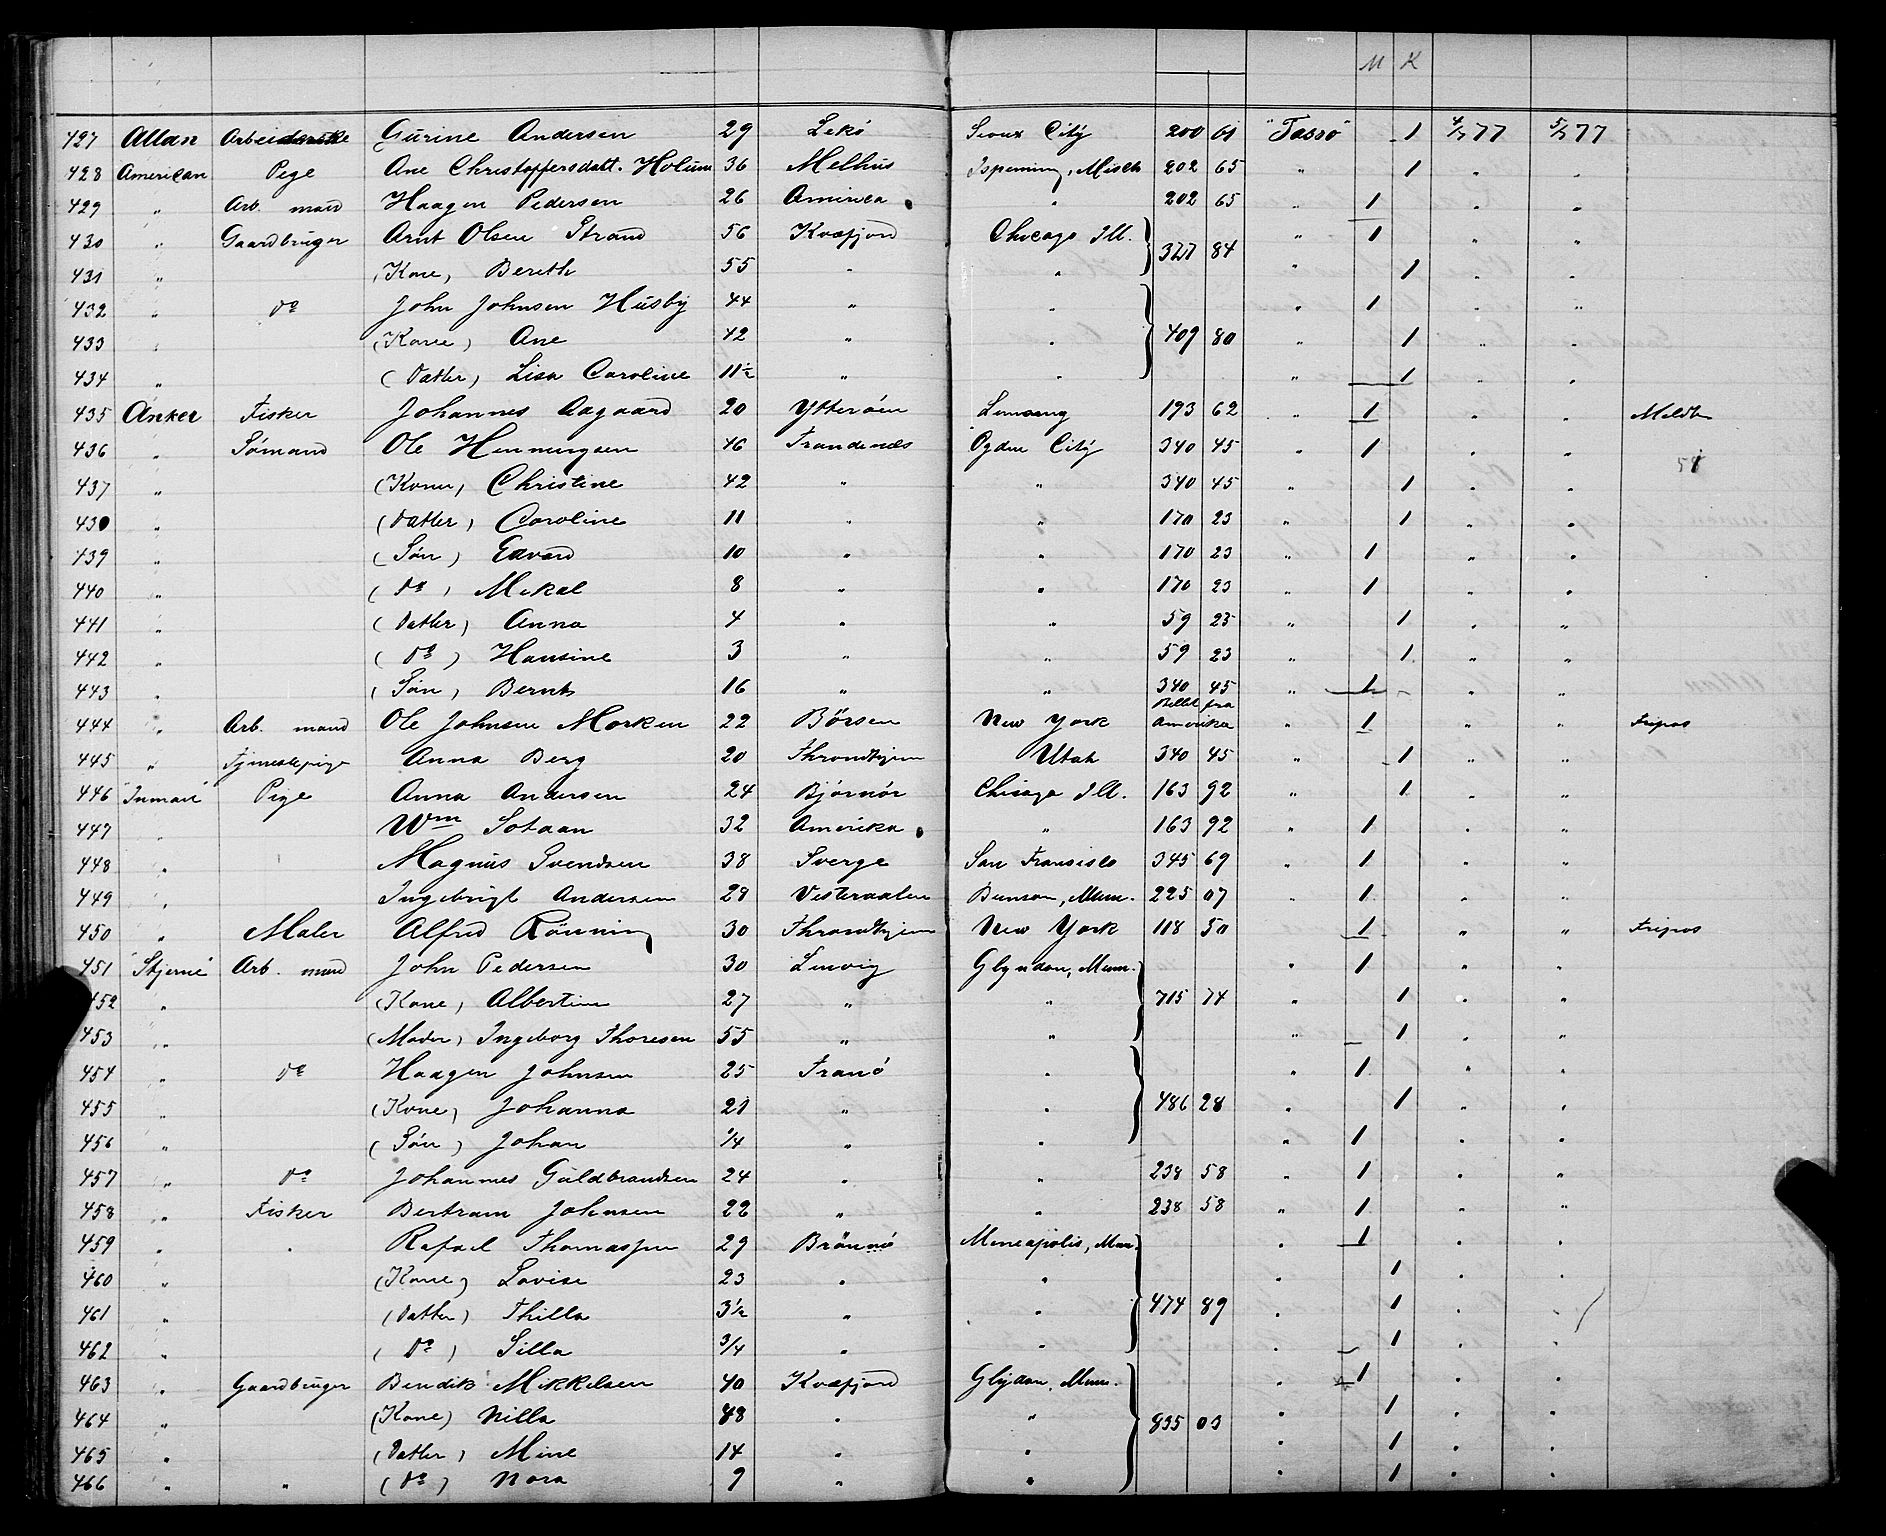 M K
427 Allan Arbeiderske Gurine Andersen 29 Lekö Sioux City 200 61 "Tasso" 1 4/7 77 5/7 77
428 American Pige Ane Christoffersdatt. Holum 36 Melhus Ispeming, Misch 202 65 " 1 " "
429 " Arb. mand Haagen Pedersen 26 Amirica " 202 65 " 1 " "
430 " Gaardbruger Arnt Olsen Strand 56 Kvæfjord Chicago Ill. } 327 84 " 1 " "
431 " (Kone) Bereth 55 " " " 1 " "
432 " do John Johnsen Husby 44 " " " 1 " "
433 " (Kone) Ane 42 " " } 409 80 " 1 " "
434 " (Datter) Lisa Caroline 11½ " " " 1 " "
435 Anker Fisker Johannes Aagaard 20 Ytteröen Lunsang 193 62 " 1 " "
436 " Sömand Ole Henningsen 46 Trondenæs Ogden City 340 45 " 1 " "
437 " (Kone) Christine 42 " " 340 45 " 1 " "
438 " (Datter) Caroline 11 " " 170 23 " 1 " "
439 " (Sön) Edvard 10 " " 170 23 " 1 " "
440 " (do) Mekal 8 " " 170 23 " 1 " "
441 " (Datter) Anna 4 " " 59 23 " 1 " "
442 " (do) Hansine 3 " " 59 23 " 1 " "
443 " (Sön) Bernt 16 " " 340 45 " 1 " "
444 " Arb. mand Ole Johnsen Morken 22 Börsen New York Billet fra Amerika " 1 " " Fripas
445 " Tjenestepige Anna Berg 20 Throndhjem Utah 340 45 " 1 " "
446 "Inman" Pige Anna Andersen 24 Björnör Chicago Ill. 163 92 " 1 " "
447 " Wm Sotaan 32 Amerika " 163 92 " 1 " "
448 " Magnus Svendsen 38 Sverge San Fransisco 345 69 " 1 " "
449 " Ingebrigt Andersen 28 Vesteraalen Benson, Minn. 225 07 " 1 " "
450 " Maler Alfred Rönning 30 Throndhjem New York 118 50 " 1 " " Fripas
451 "Stjerne" Arb. mand John Pedersen 30 Lenvig Glyndon, Minn. " 1 " "
452 " (Kone) Albertine 27 " " } 715 74 " 1 " "
453 " (Moder) Ingeborg Thoresen 55 " " " 1 " "
454 " do Haagen Johnsen 25 Tranö " " 1 " "
455 " (Kone) Johanna 21 " " } 486 28 " 1 " "
456 " (Sön) Johan ¼ " " " 1 " "
457 " do Johannes Guldbrandsen 24 " " 238 58 " 1 " "
458 " Fisker Bertram Johnsen 22 " " 238 58 " 1 " "
459 " " Rafael Thomassen 29 Brönnö Mineapolis, Min. " 1 " "
460 " (Kone) Lovise 23 " " " 1 " "
461 " (Datter) Thilla 3½ " " } 474 89 " 1 " "
462 " (do) Silla ¾ " " " 1 " "
463 " Gaardbruger Bendik Mikkelsen 40 Kvæfjord Glydon, Minn. " 1 " "
464 " (Kone) Nilla 48 " " } 835 03 " 1 " "
465 " (Datter) Mine 14 " " " 1 " "
466 " " (do) Nora 9 " " " 1 " "